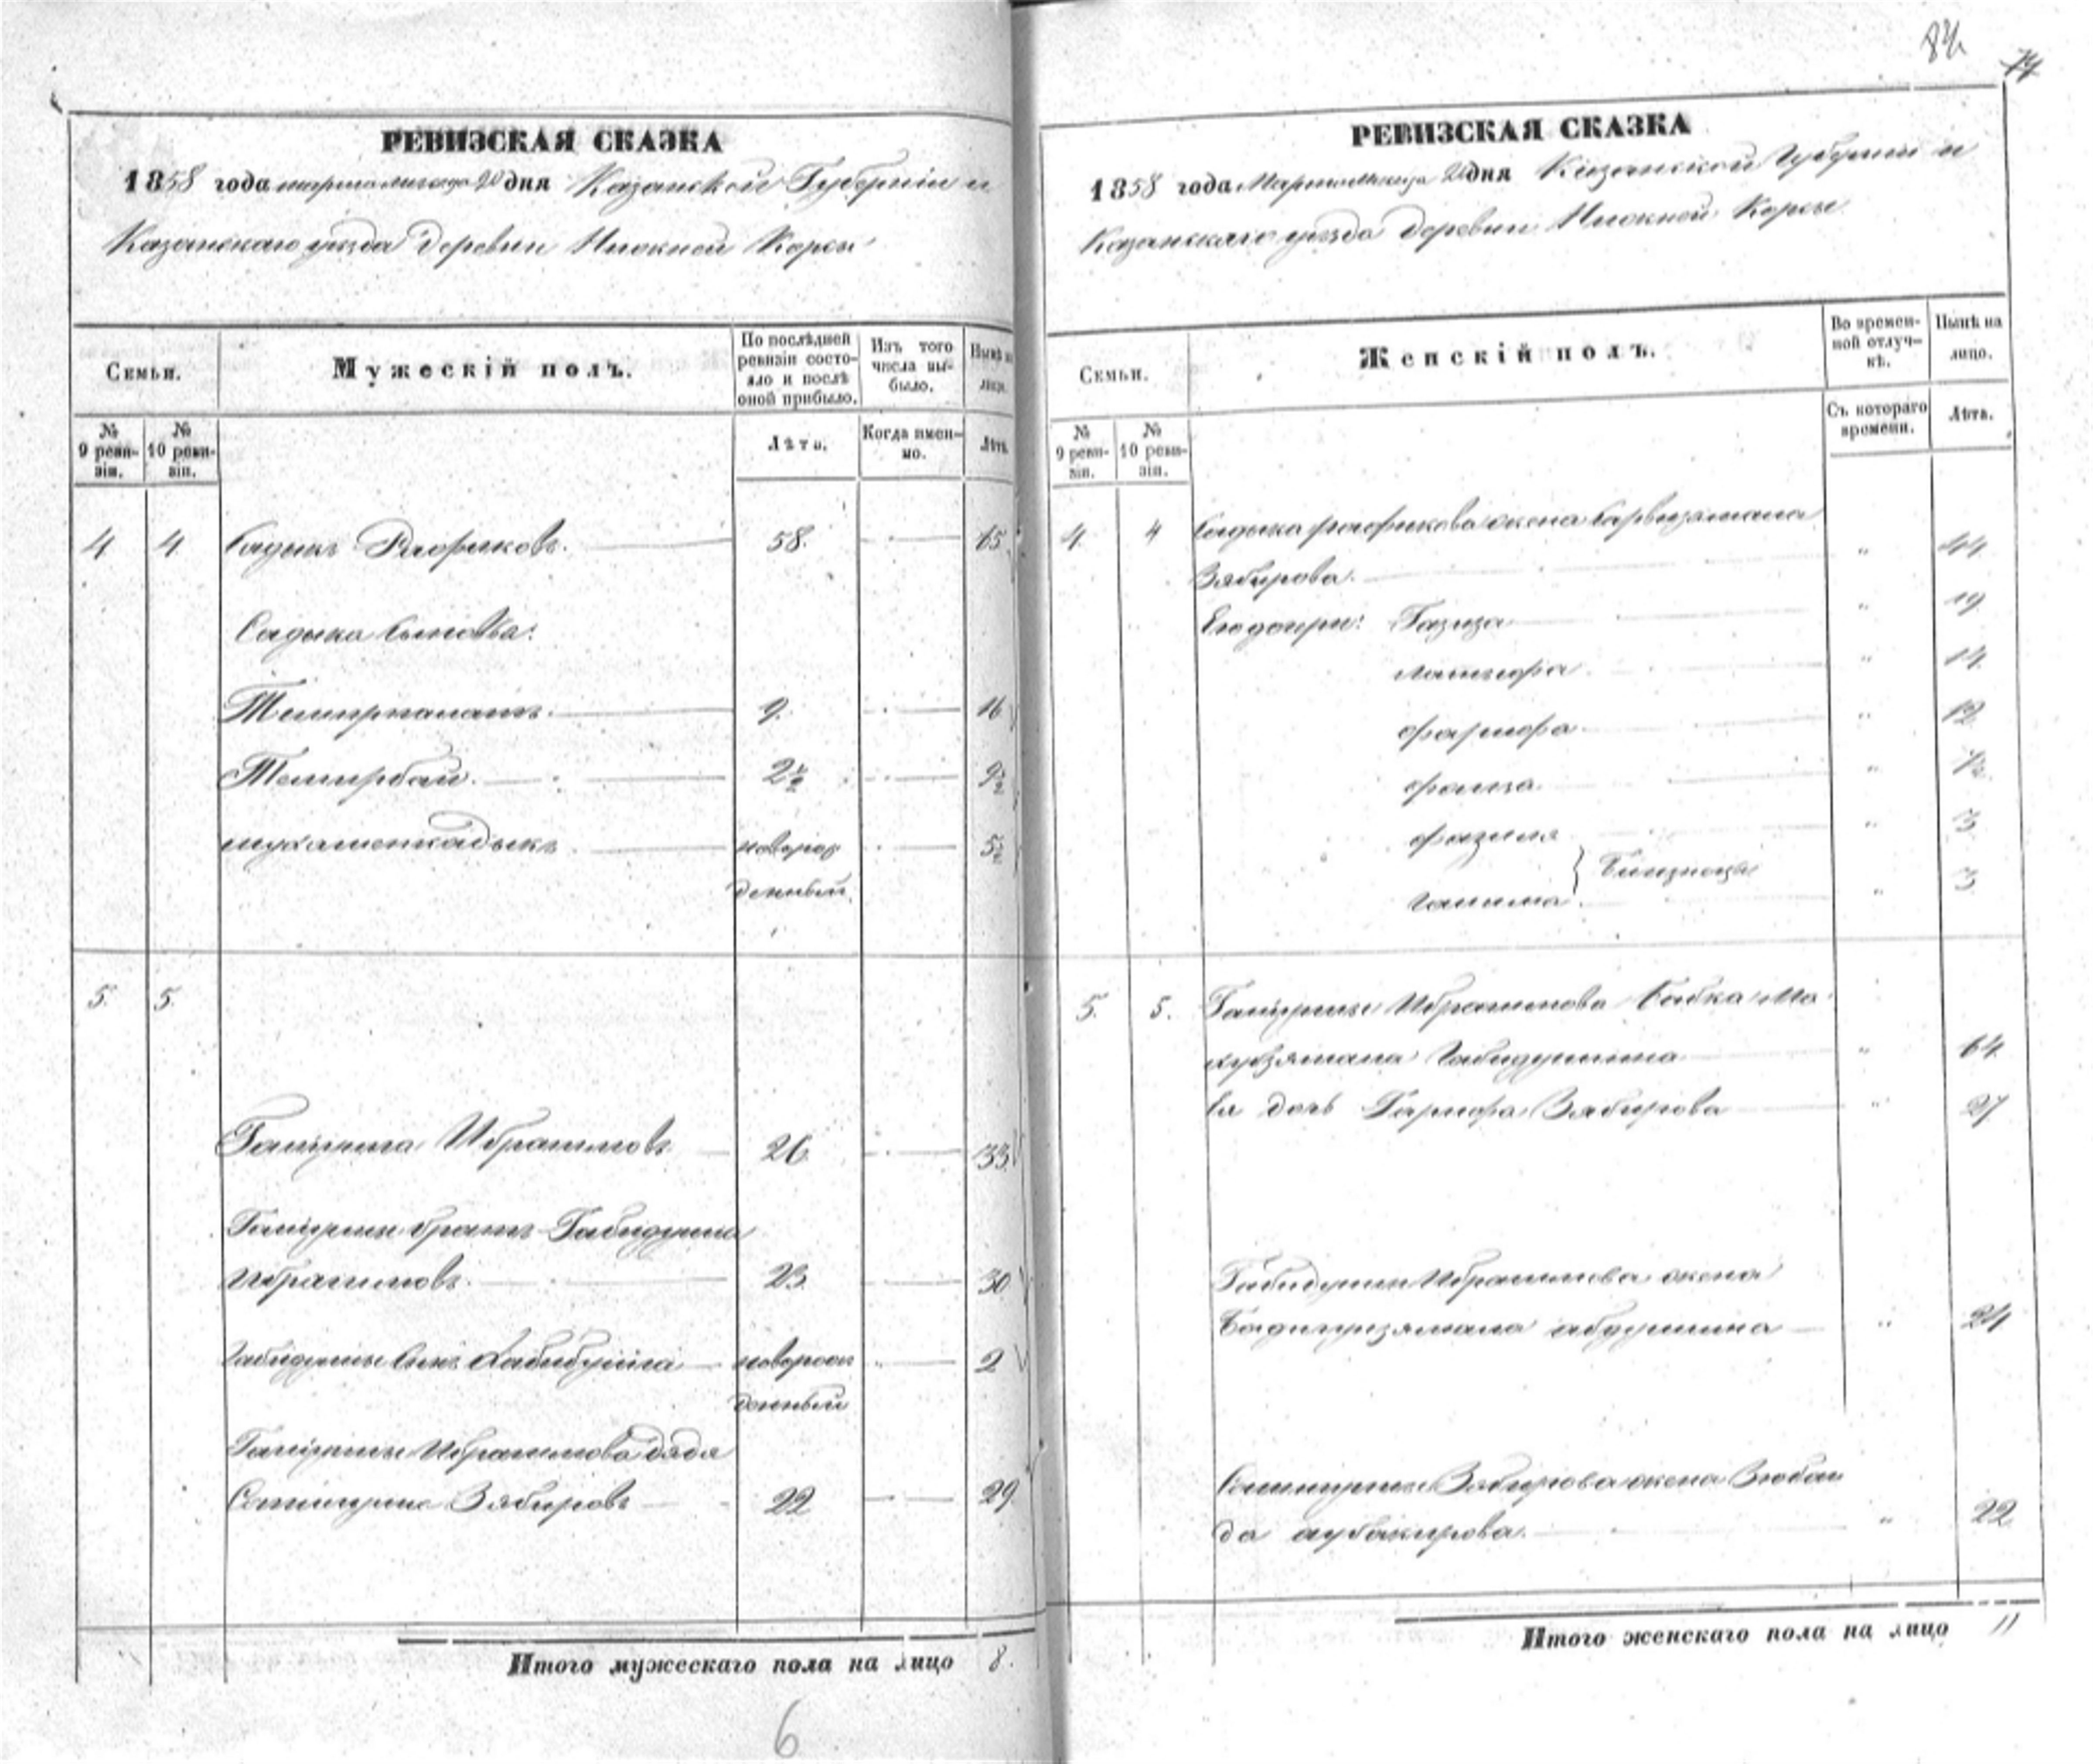 84
77
РЕВИЗСКАЯ СКАЗКА
1858 года марта месяца 20 дня Казанской Губернии и
Казанскаго уезда деревни Нижней Корсы
Семьи.
Мужескій полъ.
По послѣдней ревизіи состояло и послѣ оной прибыло.
Изъ того числа выбыло.
Нынѣ на лицо.
№ 9 ревизіи.
№ 10 ревизіи.
Лѣта.
Когда именно.
Лѣта.
4 4 Садыкъ Рафиковъ. 58. 65
Садыка сыновья:
9. 16
Темирбай. 2½ 9½
новорож 5½
денный.
5. 5.
Ибрагимовъ 26. 33
братъ Габидулла
Ибрагимовъ. 23 30
Габидуллы сынъ Хабибулла новорож 2
денный
Ибрагимова дядя
Зябировъ 22 29
Итого мужескаго пола на лицо 8.
6
РЕВИЗСКАЯ СКАЗКА
1858 года Марта месяца 20 дня Казанской Губернии и
Казанскаго уезда деревни Нижней Корсы
Семьи.
Женскій полъ.
Во временной отлучкѣ.
Нынѣ на лицо.
№ 9 ревизіи.
№ 10 ревизіи.
Съ котораго времени.
Лѣта.
4. 4 Садыка Рафикова жена
Зябирова. " 44
Его дочери: Газиза " 19
" 14
" 12
" 7½
Фазиля " 3
Близнецы
Галима " 3
5. 5. Ибрагимова бабка Ма
Габидуллина " 64
Ея дочь Зябирова " 27
Габидуллы Ибрагимова жена
Абдуллина " 24
Зябирова жена Зюбай
да Аубакирова. " 22
Итого женскаго пола на лицо 11